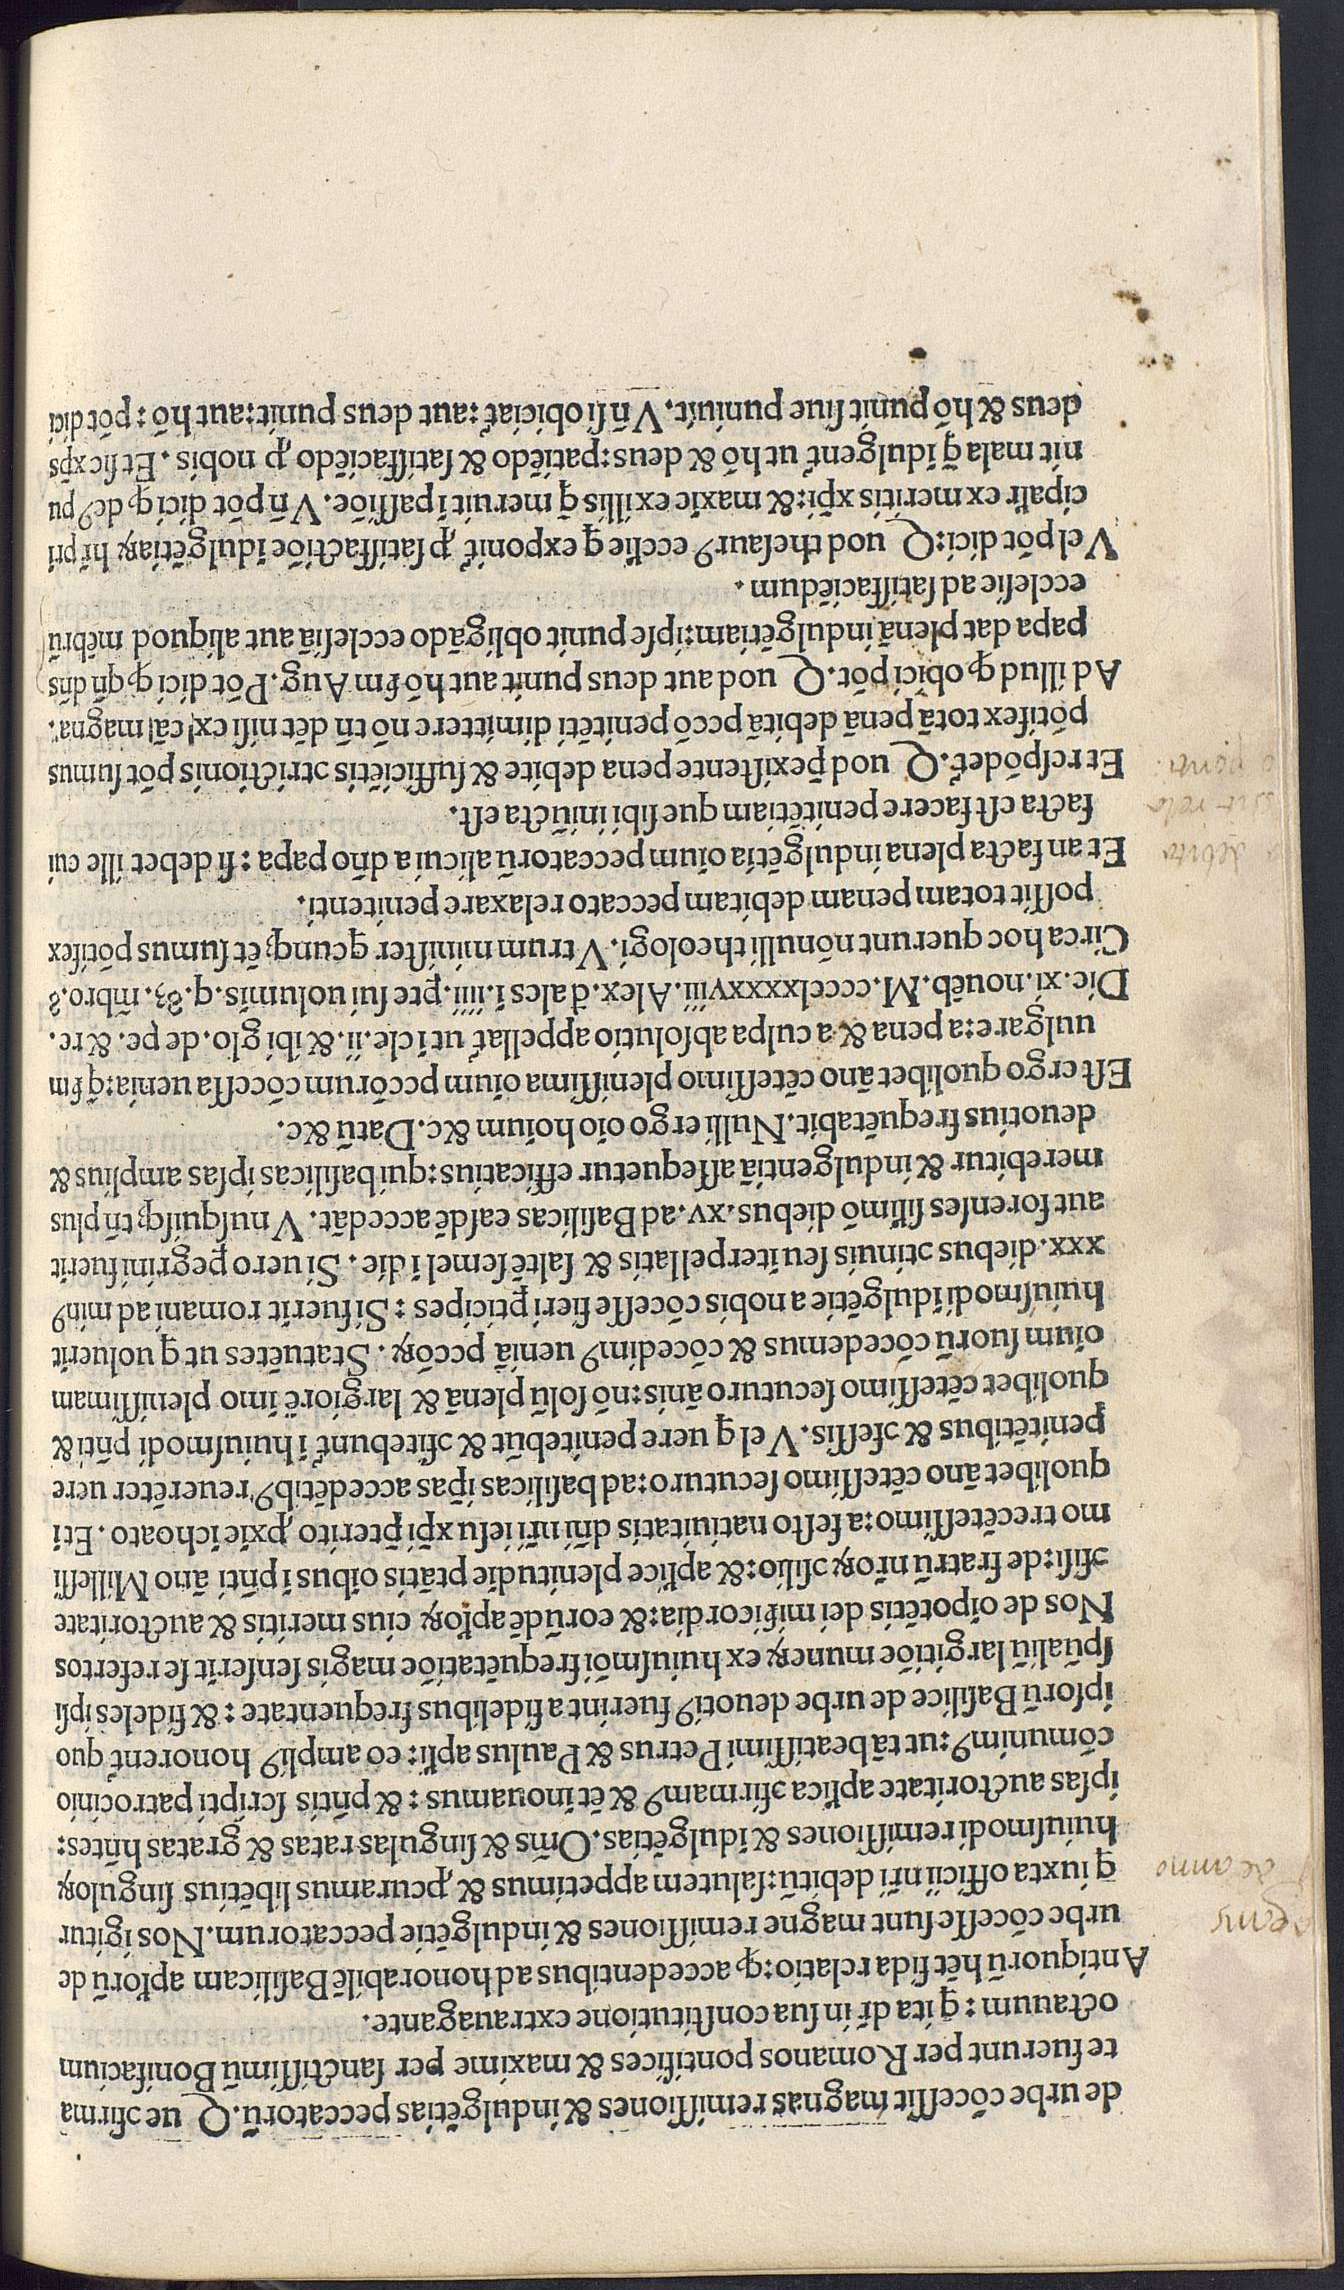 de urbe cōcessit magnas remissiones & indulgētias peccatorū. Que ɔfirma
te fuerunt per Romanos pontifices & maxime per sanctissimū Bonifacium
octauum: q̄ ita dr̄ in sua constitutione extrauagante.
Antiquorū hēt fida relatio: ꝙ accedentibus ad honorabilē Basilicam apl̄orū de
urbe cōcesse sunt magne remissiones & indulgētie peccatorum. Nos igitur
q iuxta officii nr̄i debitū: salutem appetimus & ꝓcuramus libētius singuloꝝ
huiusmodi remissiones & idulgētias. Om̄s & singulas ratas & gratas hn̄tes:
ipsas auctoritate apl̄ica ɔfirmamꝰ & ēt inouamus: & pn̄tis scripti patrocinio
cōmunimꝰ: ut tā beatissimi Petrus & Paulus apl̄i: eo ampliꝰ honorent̄ quo
ipsorū Basilice de urbe deuotiꝰ fuerint a fidelibus frequentate: & fideles ipsi
spūaliū largitiōe muneꝝ ex huiusmōi frequētatiōe magis senserīt se refertos
Nos de oīpotētis dei mīsicordia: & eorūdē apl̄oꝝ eius meritis & auctoritate
ɔfisi: de fratrū nr̄oꝝ ɔsilio: & apl̄ice plenitudīe ptātis oībus ī pn̄ti āno Millesi
mo trecētessimo: a festo natiuitatis dn̄i nr̄i iesu xp̄i p̄terito ꝓxīe īchoato. Et ī
quolibet āno cētessimo secuturo: ad basilicas ip̄as accedētibꝰ reuerēter uere
penitētibus & ɔfessis. Vel q uere penitebūt & ɔfitebunt̄ ī huiusmodi pn̄ti &
quolibet cētessimo secuturo ānis: nō solū plenā & largiorē īmo plenissimam
oīum suorū cōcedemus & cōcedimꝰ ueniā pccōꝝ. Statuētes ut q uoluerīt
huiusmodi īdulgētie a nobis cōcesse fieri pticipes: Si fuerīt romani ad minꝰ
xxx. diebus ɔtinuis seu īterpellatis & saltē semel ī die. Si uero pegrini fuerīt
aut forenses sil̄imō diebus. xv. ad Basilicas easdē accedāt. Vnusquisqꝫ tn̄ plus
merebitur & indulgentiā assequetur efficatius: qui basilicas ipsas amplius &
deuotius frequētabit. Nulli ergo oīo hoīum &c. Datū &c.
Est ergo quolibet āno cētessimo plenissima oīum pccōrum cōcessa uenia: q̄ fm
uulgare: a pena & a culpa absolutio appellat̄ ut ī cle. ii. & ibi glo. de pe. & re.
Die. xi. nouēb. M. cccclxxxxviii. Alex. đ ales ī. iiii. pte sui uolumīs. q.
Circa hoc querunt nōnulli theologi. Vtrum minister qcunqꝫ ēt sumus pōtifex
possit totam penam debitam peccato relaxare penitenti.
Et an facta plena indulgētia oīum peccatorū alicui a dn̄o papa: si debet ille cui
facta est facere penitētiam que sibi iniūcta est.
Et respōdet̄. Quod p̄existente pena debite & sufficiētis ɔtrictionis pōt sumus
pōtifex totā penā debitā pccō penitēti dimittere nō tn̄ dēt nisi ex cā magna.
Ad illud ꝙ obiici pōt. Quod aut deus punit aut hō fm Aug. Pōt dici ꝙ qn̄ dn̄s
papa dat plenā indulgētiam: ipse punit obligādo ecclesiā aut aliquod mēbrū
ecclesie ad satisfaciēdum.
Vel pōt dici: Quod thesaurꝰ ecclīe q exponit̄ ꝓ satisfactiōe īdulgētiaꝝ hr̄ pri
cipalr̄ ex meritis xp̄i: & maxīe ex illis q̄ meruit ī passiōe. Vn̄ pōt dici ꝙ deꝰ pu
nit mala q̄ īdulgent̄ ut hō & deus: patiēdo & satisfaciēdo ꝓ nobis. Et sic xp̄s
deus & hō punit siue puniuit. Vn̄ si obiiciat̄: aut deus punit: aut hō: pōt dici